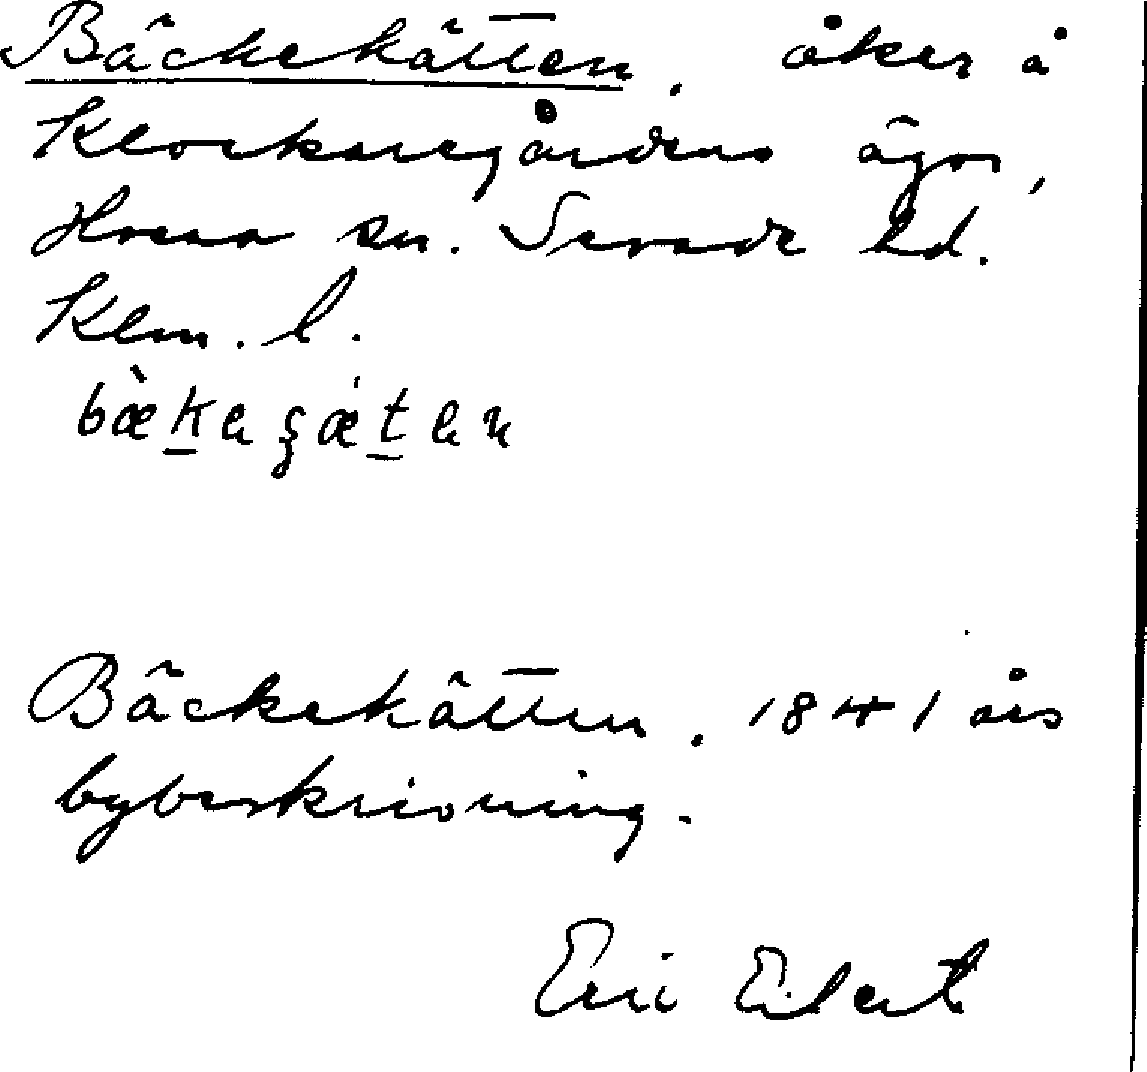 Bäckekätten. åker å
Klockaregårdens ägor,
Hvena sn. Sevede hd.
Klm. l.
bæ̀k̲eçæ̍t̲en
Bäckekätten. 1841 års
bybeskrivning.
Eric